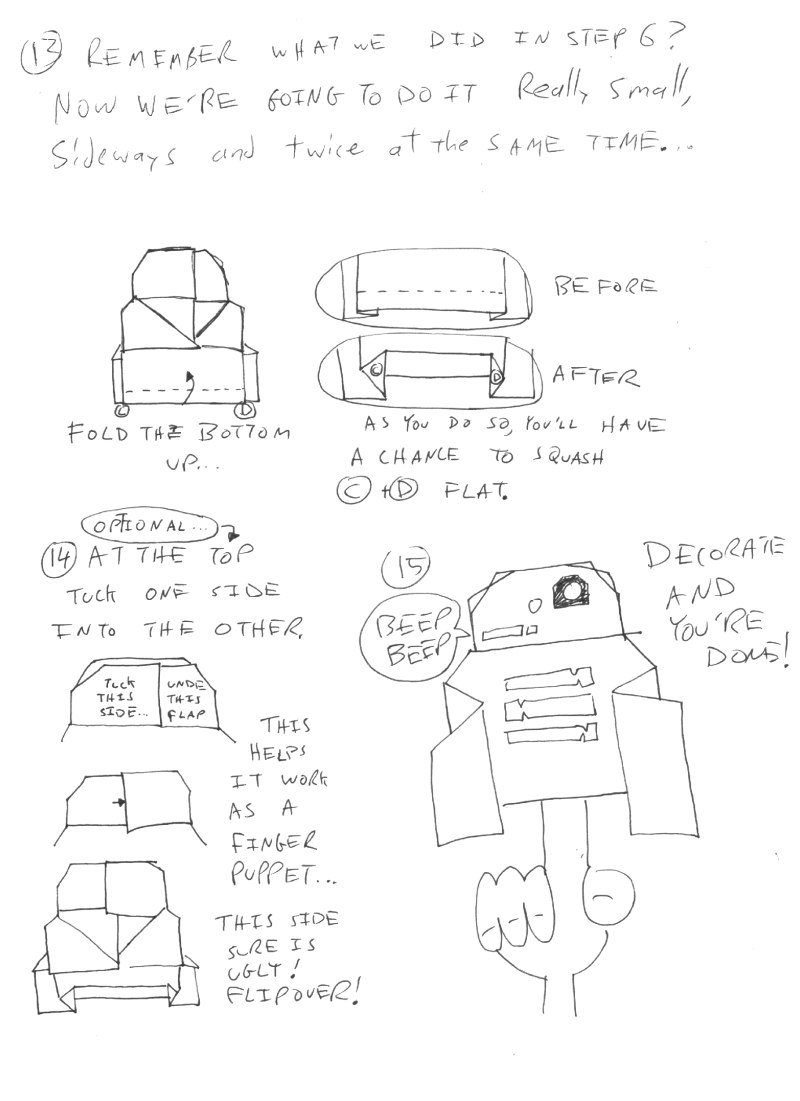 13 REMEMBER WHAT WE DID IN STEP 6?
NOW WE'RE GOING TO DO IT Really Small,
Sideways and twice at the SAME TIME...
BEFORE
C D
FOLD THE BOTTOM
UP...
C D
AFTER
AS YOU DO SO, YOU'LL HAVE
A CHANCE TO SQUASH
C + D FLAT.
OPTIONAL...
14 AT THE TOP
TUCK ONE SIDE
INTO THE OTHER.
TUCK
THIS
SIDE...
UNDE
THIS
FLAP
THIS
HELPS
IT WORK
AS A
FINGER
PUPPET...
THIS SIDE
SURE IS
UGLY!
FLIP OVER!
15
DECORATE
AND
YOU'RE
DONE!
BEEP
BEEP